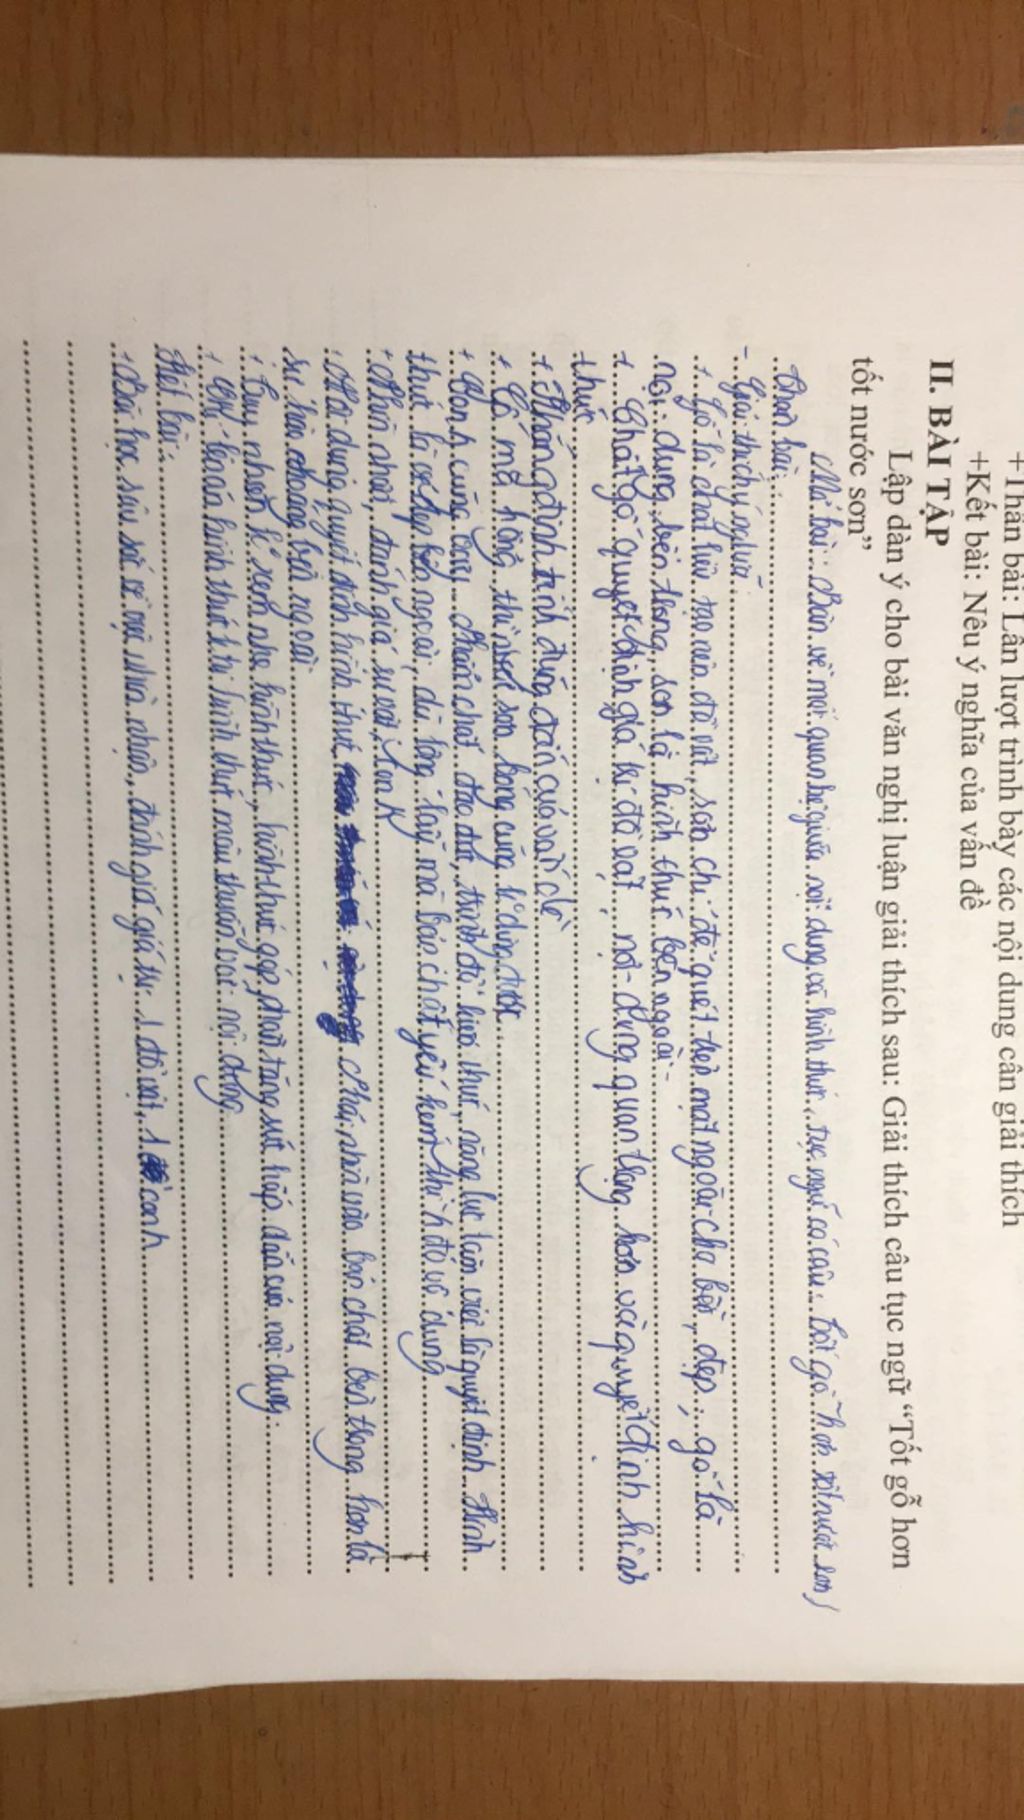 +Thân bài: Lần lượt trình bày các nội dung cần giải thích
+Kết bài: Nêu ý nghĩa của vấn đề
II. BÀI TẬP
Lập dàn ý cho bài văn nghị luận giải thích sau: Giải thích câu tục ngữ “Tốt gỗ hơn
tốt nước sơn”
Mở bài: Bàn về mối quan hệ giữa nội dung và hình thức, tục ngữ có câu: Tốt gỗ hơn tốt nước sơn
Thân bài:
- Giải thích ý nghĩa
+ Gỗ là chất liệu tạo nên đồ vật, sơn chỉ để quét lên mặt ngoài cho bền, đẹp, gỗ là
nội dung bên trong, sơn là hình thức bên ngoài
+ Chất gỗ quyết định giá trị đồ vật, nội dung quan trọng hơn và quyết định hình
thức
+ Khẳng định tính đúng đắn của vấn đề
+ Gỗ mà hỏng thì nước sơn cũng k dùng được
+ Con cũng phẩm chất đạo đức, trình độ kiến thức, năng lực làm việc là quyết định. Hình
thức là vẻ đẹp bên ngoài, dù lộng lẫy mà bản chất yếu kém thì đồ vô dụng
+ Nhìn nhận, đánh giá sự vật,
+ Nội dung quyết định hình thức Phải nhìn vào bản chất bên trong hơn là
sự hào nhoáng bên ngoài
+ Tuy nhiên k xem nhẹ hình thức, hình thức góp phần tăng sức hấp dẫn của nội dung
+ hình thức hình thức mâu thuẫn với nội dung
Kết bài:
+ Bài học sâu sắc về việc nhìn nhận, đánh giá giá trị 1 đồ vật, 1 con